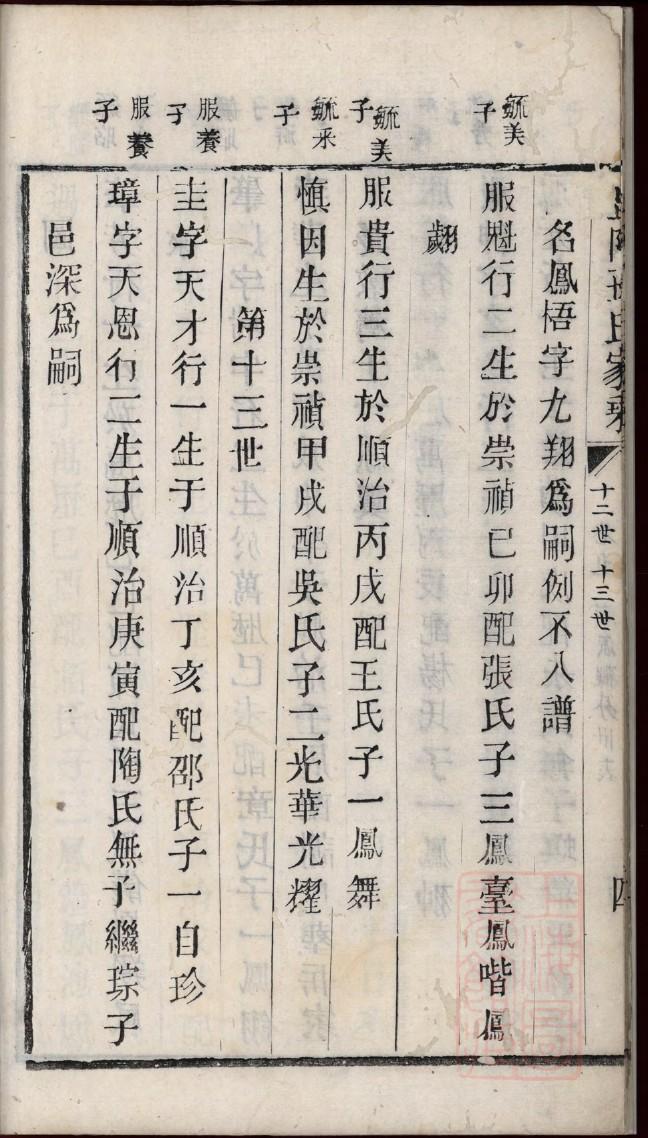 氏家乘
十二世 十三世
四
名鳳悟字九翔爲嗣例不入譜
毓美子
服魁行二生於崇禎已卯配張氏子三鳳臺鳳喈鳳
翽
毓美子
服貴行三生於順治丙戌配王氏子一鳳舞
毓采子
慎因生於崇禎甲戌配吳氏子二光華光耀
第十三世
服養子
圭字天才行一生于順治丁亥配邵氏子一自珍
服養子
璋字天恩行二生子順治庚寅配陶氏無子繼琮子
邑深爲嗣